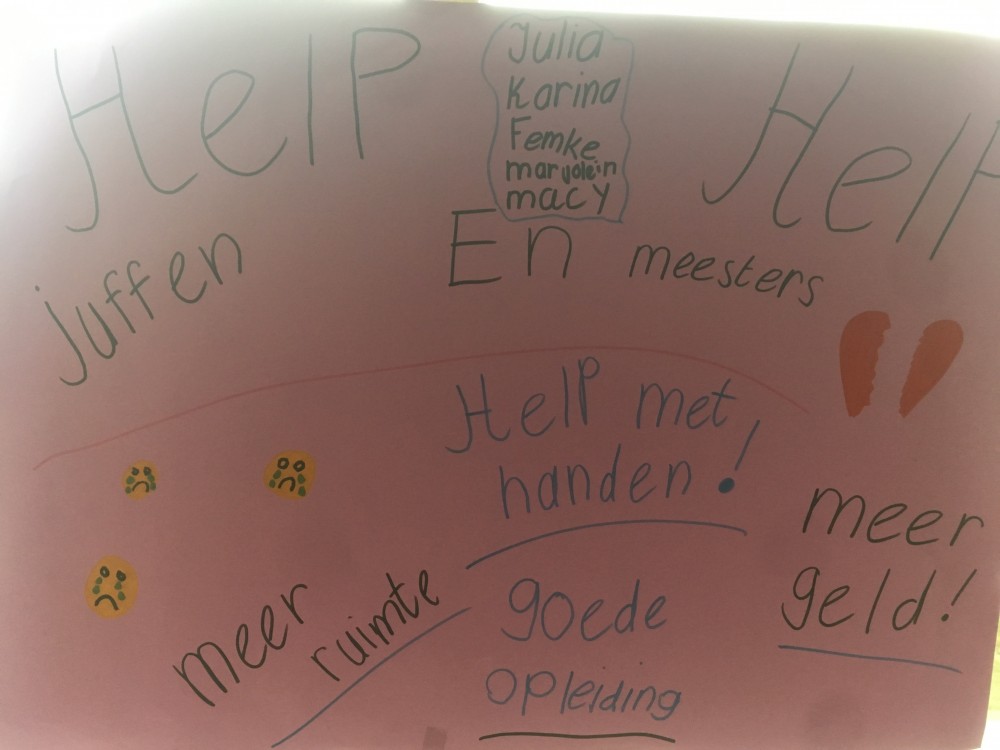 Help
Julia
Karina
Femke
marjolein
macy
Help
juffen
En meesters
Help met
handen!
meer
geld!
meer
ruimte
goede
opleiding